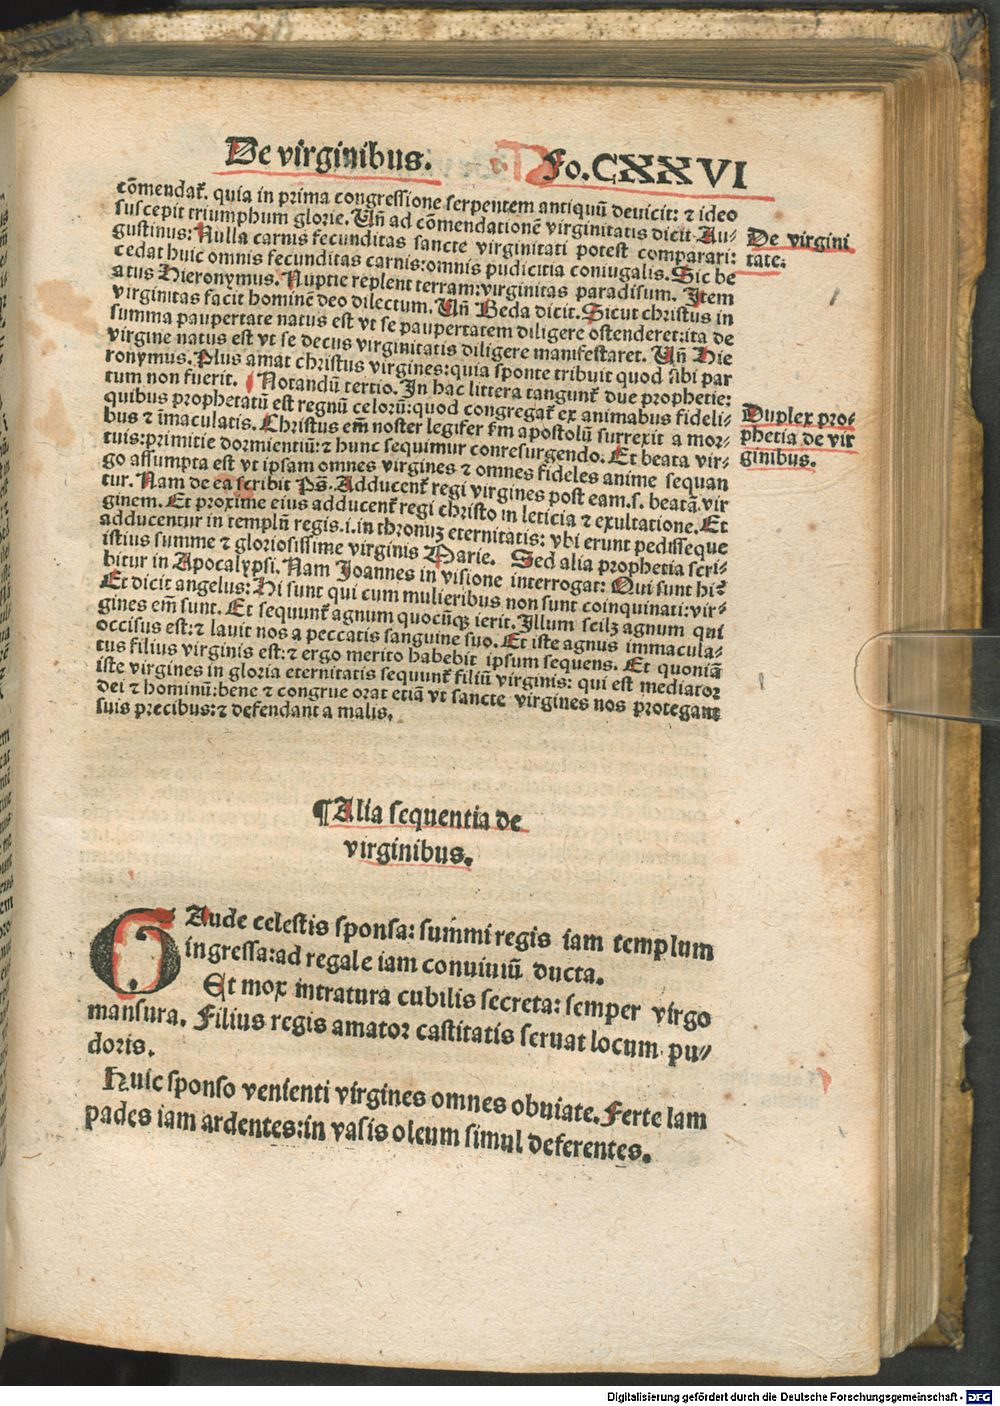 De virginibus. Fo. CXXVI
cōmendaṫ. quia in prima congressione serpentem antiquū deuicit: ⁊ ideo
suscepit triumphum glorie. Uñ ad cōmendationē virginitatis dicit Au⸗
gustinus: Nulla carnis fecunditas sancte virginitati potest comparari:
cedat huic omnis fecunditas carnis: omnis pudicitia coniugalis. Sic be
atus Hieronymus. Nuptie replent terram: virginitas paradisum. Item
virginitas facit hominē deo dilectum. Uñ Beda dicit. Sicut christus in
summa paupertate natus est vt se paupertatem diligere ostenderet: ita de
virgine natus est vt se decus virginitatis diligere manifestaret. Uñ Hie
ronymus. Plus amat christus virgines: quia sponte tribuit quod sibi par
tum non fuerit. Notandū tertio. In hac littera tangunṫ due prophetie:
quibus prophetatū est regnū celorū: quod congregaṫ ex animabus fideli⸗
bus ⁊ īmaculatis. Christus em̄ noster legifer fm apostolū surrexit a mor⸗
tuis: primitie dormientiū: ⁊ hunc sequimur conresurgendo. Et beata vir⸗
go assumpta est vt ipsam omnes virgines ⁊ omnes fideles anime sequan
tur. Nam de ea scribit Ps̄. Adducenṫ regi virgines post eam. s. beatā vir
ginem. Et proxime eius adducenṫ regi christo in leticia ⁊ exultatione. Et
adducentur in templū regis. i. in thronuʒ eternitatis: vbi erunt pedisseque
istius summe ⁊ gloriosissime virginis Marie. Sed alia prophetia scri⸗
bitur in Apocalypsi. Nam Joannes in visione interrogat: Qui sunt hi?
Et dicit angelus: Hi sunt qui cum mulieribus non sunt coinquinati: vir⸗
gines em̄ sunt. Et sequunṫ agnum quocūqꝫ ierit. Illum scilʒ agnum qui
occisus est: ⁊ lauit nos a peccatis sanguine suo. Et iste agnus immacula⸗
tus filius virginis est: ⁊ ergo merito habebit ipsum sequens. Et quoniā
iste virgines in gloria eternitatis sequunṫ filiū virginis: qui est mediator
dei ⁊ hominū: bene ⁊ congrue orat etiā vt sancte virgines nos protegant
suis precibus: ⁊ defendant a malis.
De virgini
tate:
Duplex pro⸗
phetia de vir
ginibus.
¶Alia sequentia de
virginibus.
GAude celestis sponsa: summi regis iam templum
ingressa: ad regale iam conuiuiū ducta.
Et mox intratura cubilis secreta: semper virgo
mansura. Filius regis amator castitatis seruat locum pu⸗
doris.
Huic sponso venienti virgines omnes obuiate. Ferte lam
pades iam ardentes: in vasis oleum simul deferentes.
Digitalisierung gefördert durch die Deutsche Forschungsgemeinschaft - DFG